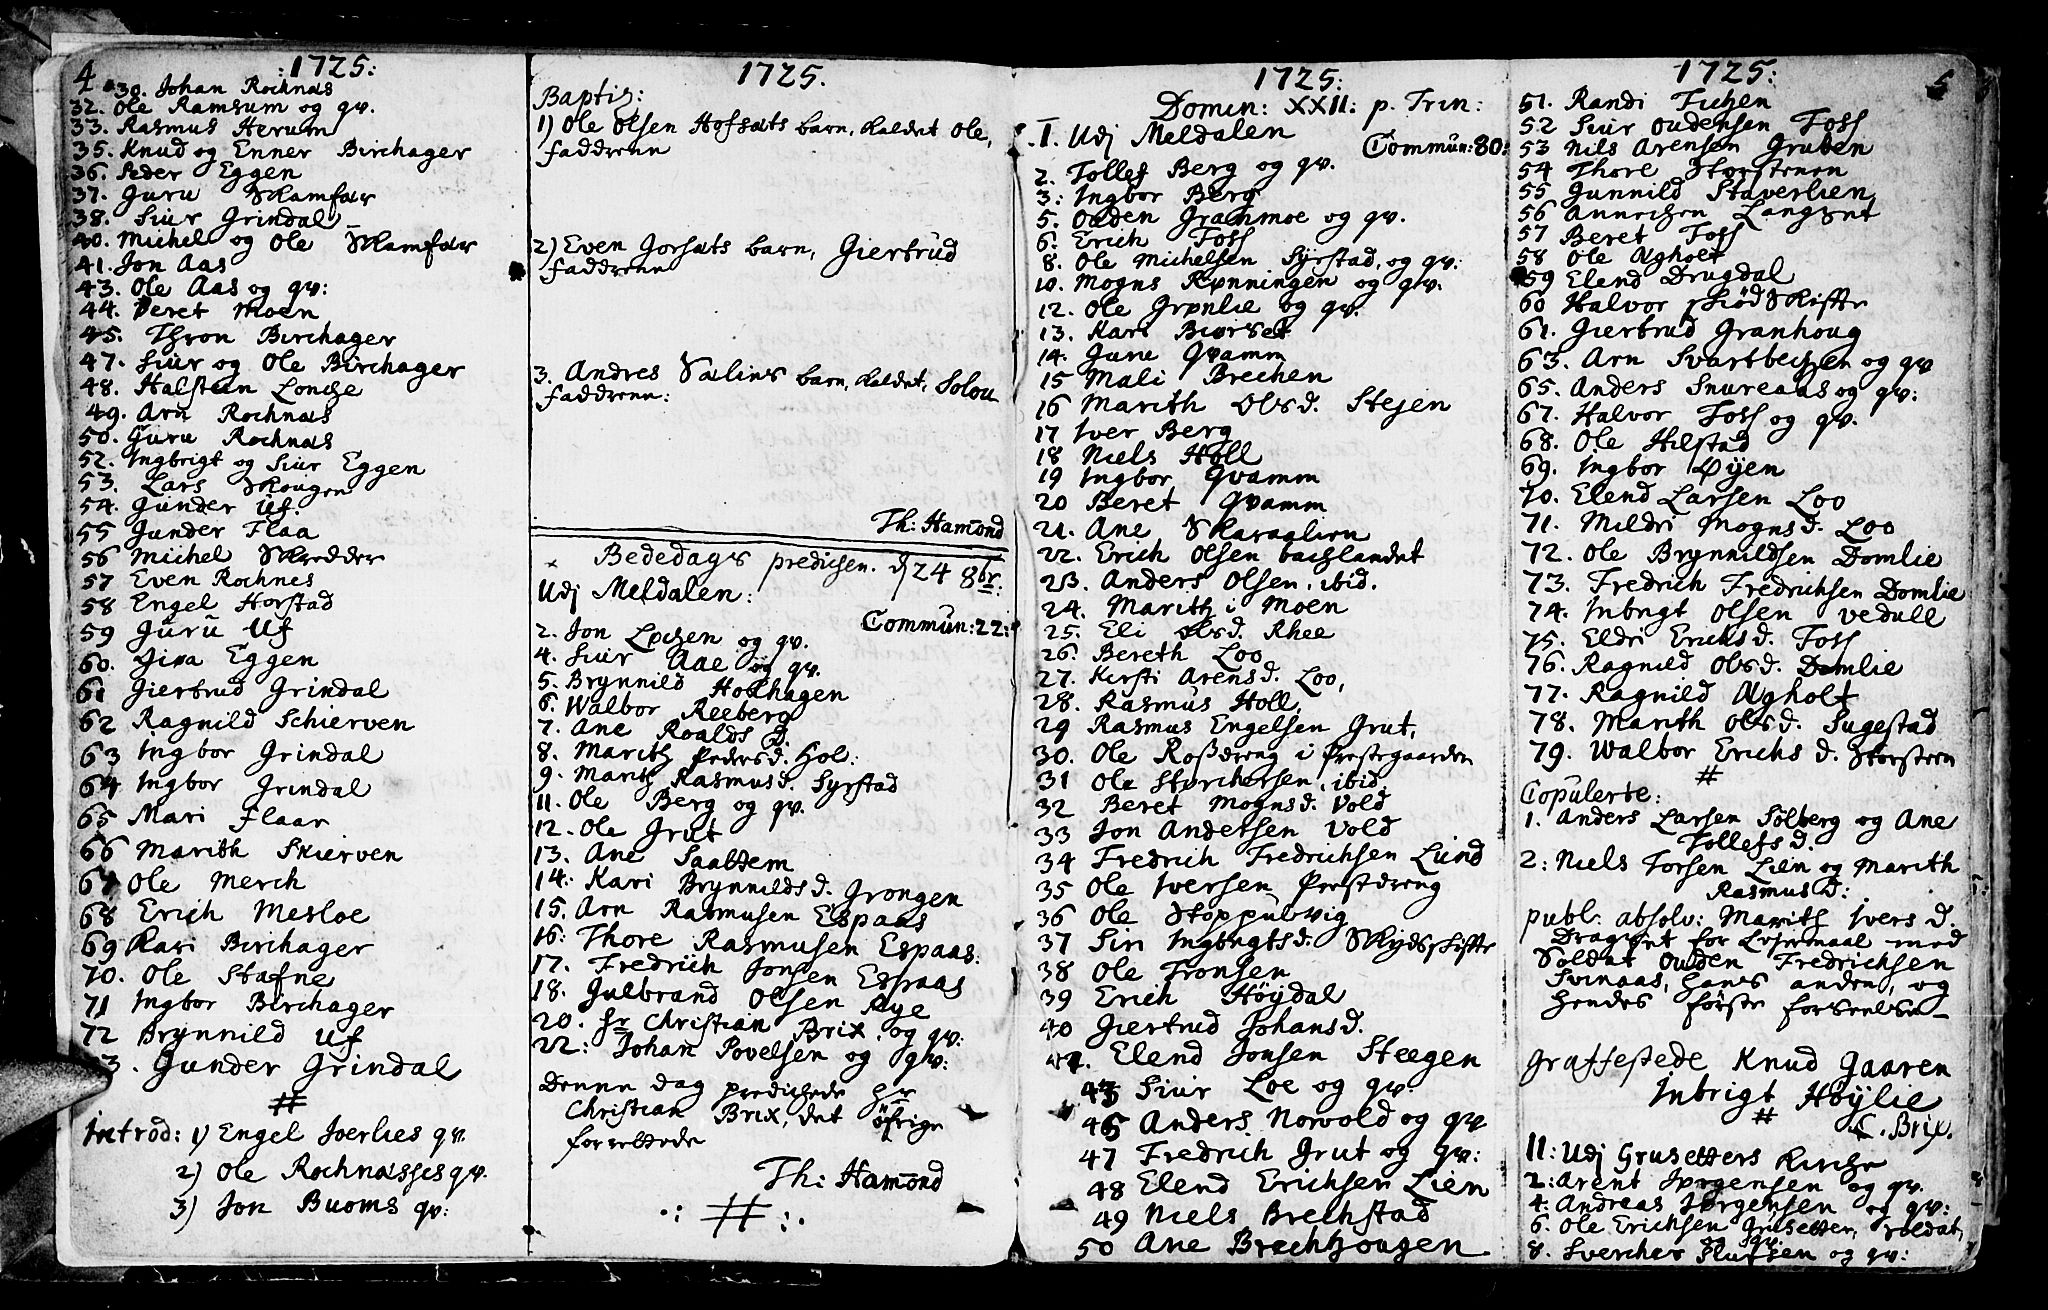 4
:1725:
30. Johan Rochnæs
32. Ole Ramsum og qv.
33. Rasmus Herum
35. Knud og Enner Birchager
36. Peder Eggen
37. Guru Skamfær
38. Siur Grindal
40. Michel og Ole Skamfær
41. Jon Aas
43. Ole Aas og qv:
44. Beret Moen
45. Thron Birchager
47. Siur og Ole Birchager
48. Halstein Lonche
49. Arn Rochnæs
50. Guru Rochnæs
52. Ingbrigt og Siur Eggen
53. Lars Skougen
54. Gunder Uf.
55 Gunder Flaa
56 Michel Skredder
57 Even Rochnes
58 Engel Horstad
59 Guru Uf
60. Eggen
61 Giertrud Grindal
62 Ragnild Schierven
63 Ingbor Grindal
64 Ingbor Grindal
65 Mari Flaar
66 Marith Skierven
67 Ole Merch
68 Erich Mesloe
69 Kari Birchager
70. Ole Stafne
71 Ingbor Birchager
72 Brynnild Uf
73. Gunder Grindal
#
Introd: 1) Engel Joerlies qv.
2) Ole Rochnæsses qv.
3) Jon Buoms qv:
1725.
Baptiz:
1) Ole Olsen Hofsæts barn, kaldet Ole,
faddrene
2) Even Jorsæts barn, Giertrud
faddrene
3. Andres Sælins barn, kaldet, Solou
faddrene:
Th: Hamond
Bededags predichen. d 24 8br:
Udj Meldalen:
Commun: 22:
2. Jon Lochen og qv.
4. Siur Aae og qv.
5. Brynnild Holhagen
6. Walbor Reeberg
7. Ane Roalds d.
8. Marith Pedersd. Hol:
9. Marith Rasmusd. Syrstad
11. Ole Berg og qv.
12. Ole Grut
13. Ane Saltem
14. Kari Brynnildsd. Grongen
15. Arn Rasmusen Espaas
16: Thore Rasmusen Espaas:
17. Fredrich Jonsen Espaas
18. Gulbrand Olsen Rye
20. hr Christian Brix, og qv:
22: Johan Povelsen og qv:
Denne dag predichede hr
Christian Brix, det øfrige
forrettede
Th: Hamond
.: # :.
1725:
Domin: XXII: p. Trin:
1. Udj Meldalen
Commun: 80:
2. Tollef Berg og qv.
3: Ingbor Berg
5. Ouden Granmoe og qv.
6. Erich Foss
8. Ole Michelsen Syrstad, og qv:
10. Mogns Rønningen og qv.
12. Ole Grønlie og qv.
13. Kari Biørset
14. Qvamm
15 Mali Brechen
16 Marith Olsd. Stegen
17 Iver Berg
18 Niels Holl
19 Ingbor Qvamm
20 Beret Qvamm
21. Ane Skaraglien
22. Erich Olsen bachslandet
23. Anders Olsen, ibid.
24. Marith i Moen
25. Eli Olsd. Rhee
26. Bereth Loo
27. Kirsti Arensd. Loo,
28. Rasmus Holl,
29 Rasmus Engelsen Grut,
30. Ole Rossdreng i Prestegaarden
31 Ole Storchersen, ibid.
32 Beret Mognsd. Vold
33 Jon Andersen Vold
34 Fredrich Fredrichsen Lund
35 Ole Iversen Prestdreng
36 Ole Stoppulvig
37 Siri Ingbrigtsd. Skydskifte
38 Ole Tronsen
39 Erich Höydal
40 Giertrud Johansd.
Elend Jonsen Steegen
43 Siur Loe og qv.
45 Anders Norvold og qv
47 Fredrich Grut og qv:
48 Elend Erichsen Lien
49 Niels Brechstad
50 Ane Brechhougen
1725:
5
51. Randi Fichen
52 Siur Oudensen Foss
53 Nils Arensen Gruben
54 Thore Storstenen
55 Gunnild Staverlien
56 Annichen Langset
57 Beret Foss
58 Ole Agholt
59 Elend Drugdal
60 Halvor Skiødskifte
61. Giertrud Granhoug
63. Arn Svartbechen og qv
65. Anders Snureaas og qv:
67. Halvor Foss og qv.
68. Ole Hilstad
69. Ingbor Øyen
70. Elend Larsen Loo
71. Mildri Mognsd. Loo
72. Ole Brynnildsen Domlie
73. Fredrich Fredrichsen Domlie
74. Inbrigt Olsen Vedull
75. Eldri Erichsd. Foss
76. Ragnild Olsd. Domlie
77. Ragnild Agholt
78. Marith Olsd. Sugestad
79. Walbor Erichs d. Storsteen
#
Copulerte:
1. Anders Larsen Solberg og Ane
Tollefsd.
2: Niels Torsen Lien og Marith
Rasmusd:
publ: absolv: Marith Ivers d.
Dragset for Leiermaal med
Soldat Ouden Fredrichsen
Svinaas, hans anden, og
hendes første forseelse
graffestede Knud Gaaren
Inbrigt Höylie
#
C. Brix.
11: Udj Grusetters Kirche
2: Arent Jørgensen og qv.
4: Andreas Jørgensen og qv:
6. Ole Erichsen Grusetter, soldat,
og qv.
8. Svercher Slufsen og qv: